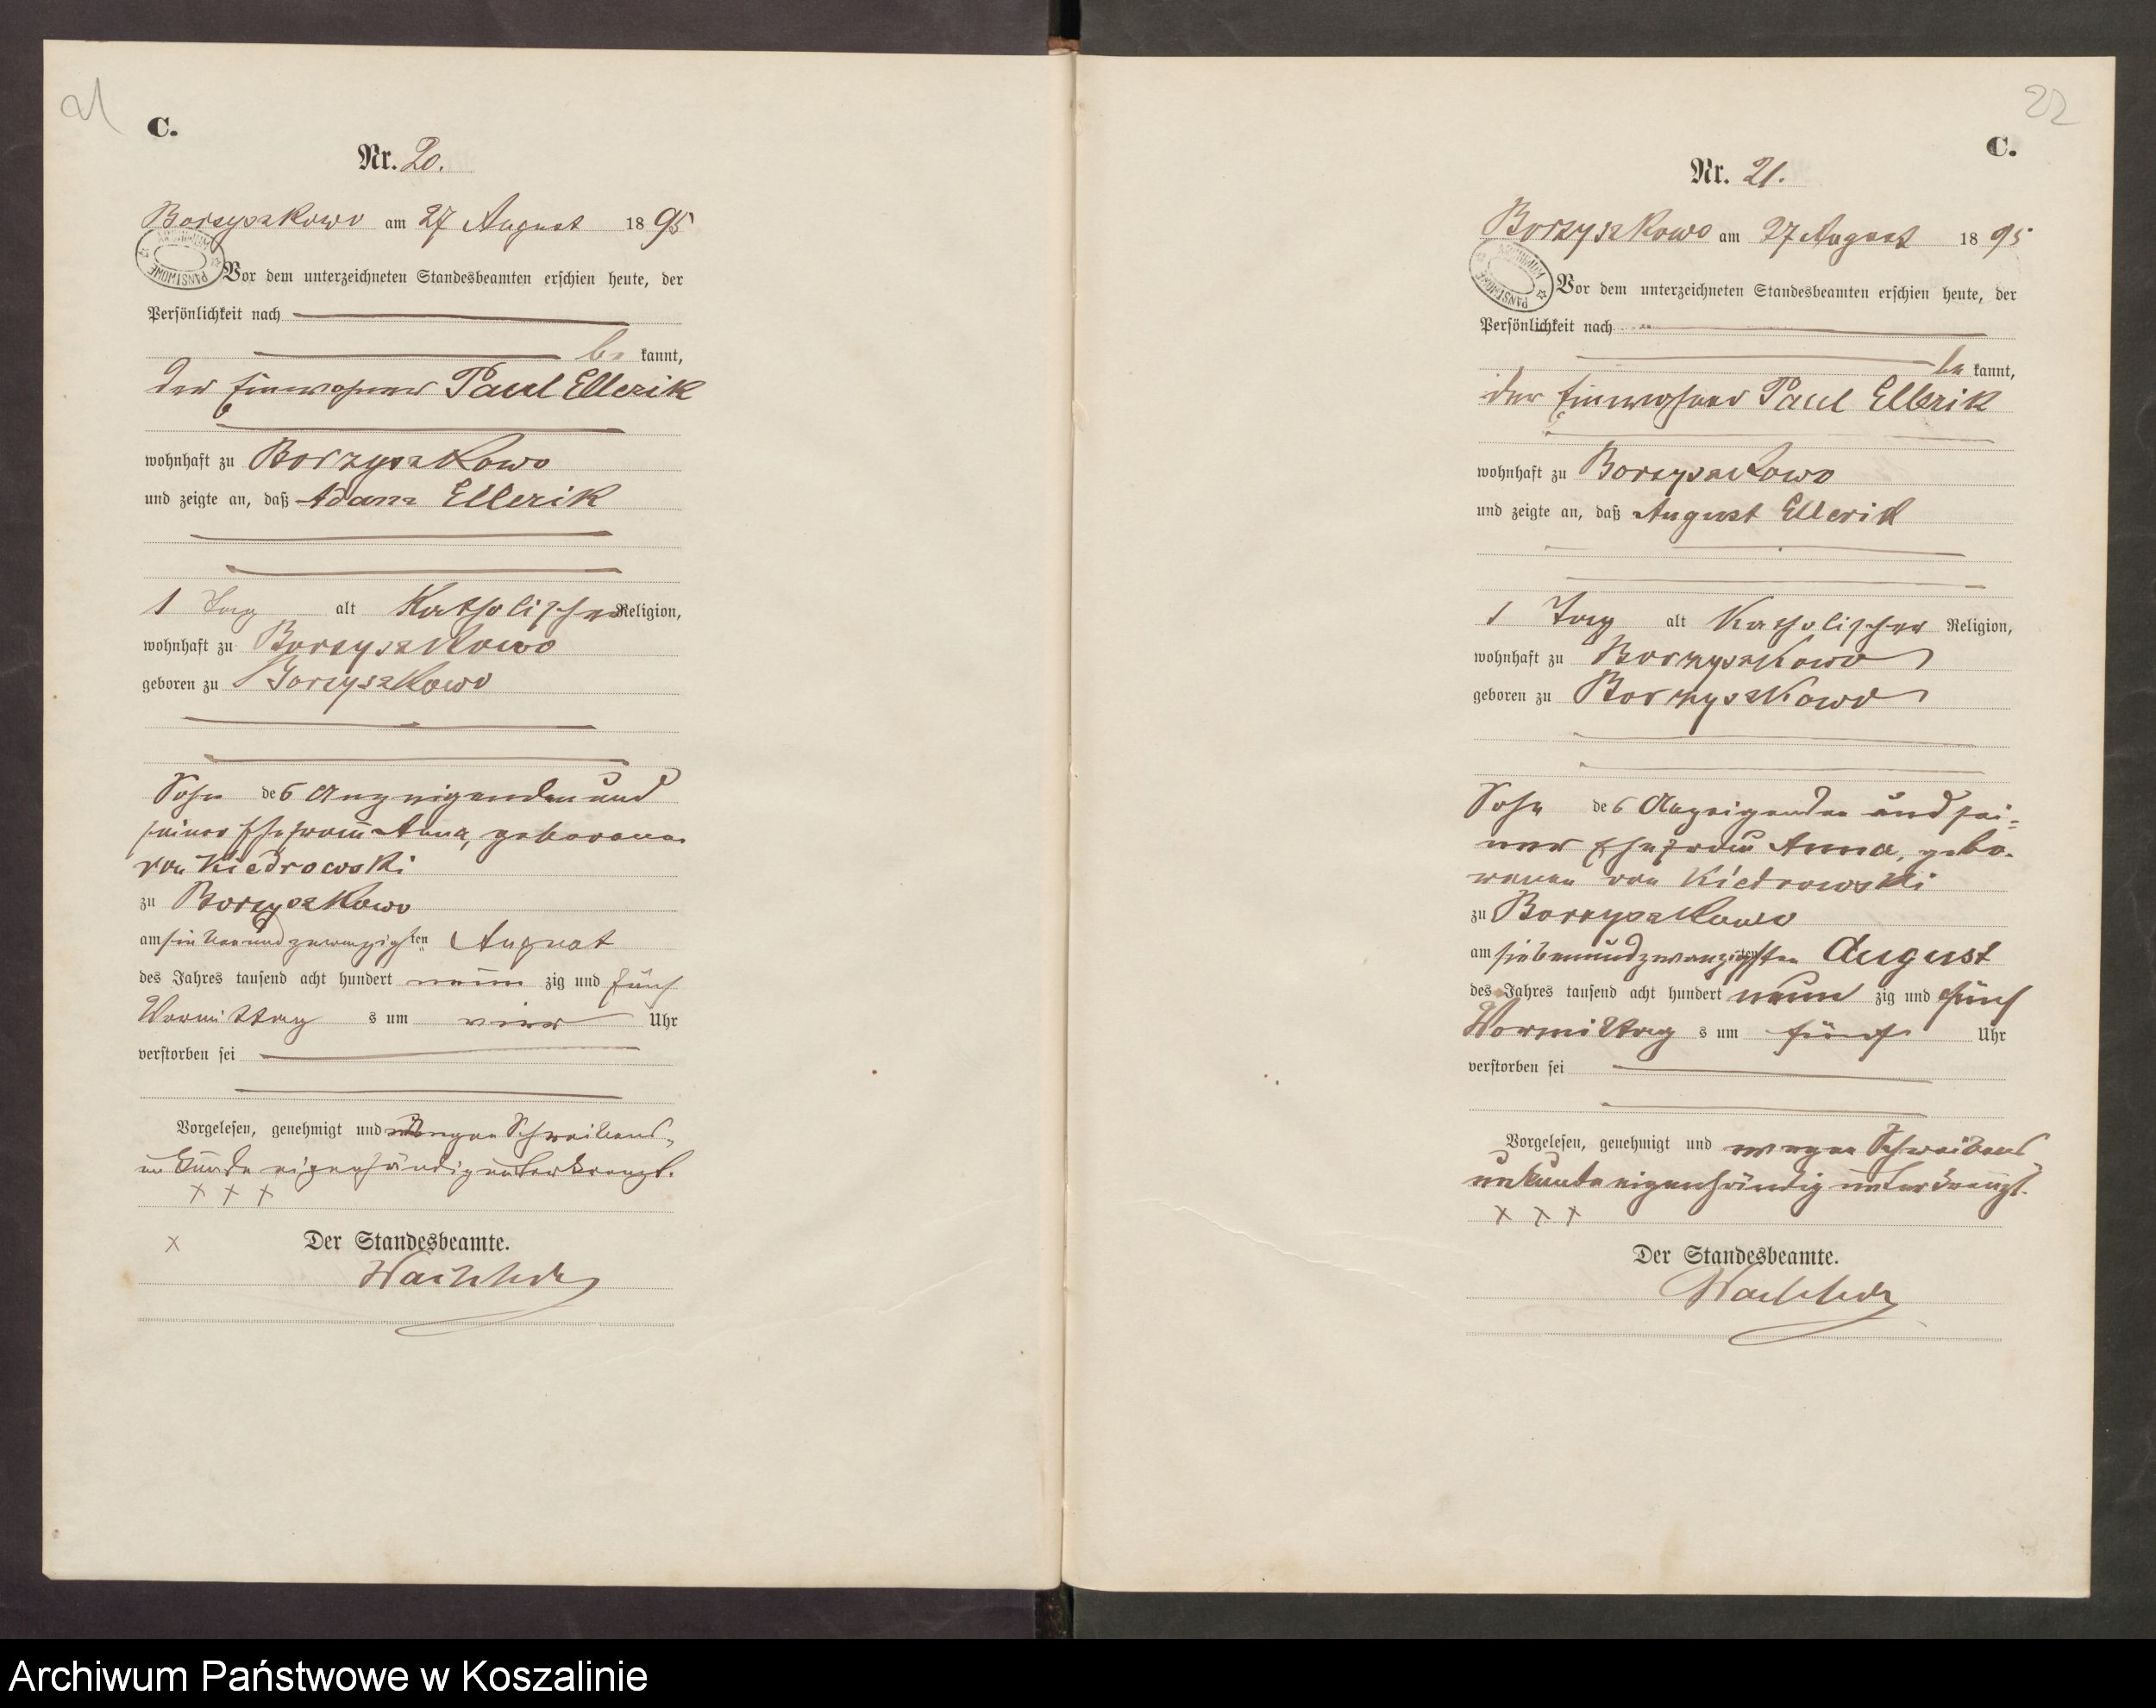 21
C.
Nr. 20.
Borzyszkowo am 27 August 1895
Vor dem unterzeichneten Standesbeamten erschien heute, der
Persönlichkeit nach
be kannt,
der Einwohner Paul Ellerik
wohnhaft zu Borzyszkowo
und zeigte an, daß Adam Ellerik
1 Tag alt Katholischer Religion,
wohnhaft zu Borzyszkowo
geboren zu Borzyszkowo
Sohn des Anzeigenden und
seiner Ehefrau Anna, geborenen
von Kiedrowski
zu Borzyszkowo
am siebenundzwanzigsten August
des Jahres tausend acht hundert neun zig und fünf
Vormittag s um vier Uhr
verstorben sei
Vorgelesen, genehmigt und wegen Schreibens-
unkunde eigenhändig unterkreuzt.
+ + +
Der Standesbeamte.
22
C.
Nr. 21.
Borzyszkowo am 27 August 1895
Vor dem unterzeichneten Standesbeamten erschien heute, der
Persönlichkeit nach
be kannt,
der Einwohner Paul Ellerik
wohnhaft zu Borzyszkowo
und zeigte an, daß August Ellerik
1 Tag alt Katholischer Religion,
wohnhaft zu Borzyszkowo
geboren zu Borzyszkowo
Sohn des Anzeigenden und sei-
ner Ehefrau Anna, gebo-
renen von Kiedrowski
zu Borzyszkowo
am siebenundzwanzigsten August
des Jahres tausend acht hundert neun zig und fünf
Vormittag s um fünf Uhr
verstorben sei
Vorgelesen, genehmigt und wegen Schreibens
unkunde eigenhändig unterkreuzt.
+ + +
Der Standesbeamte.
Archiwum Państwowe w Koszalinie